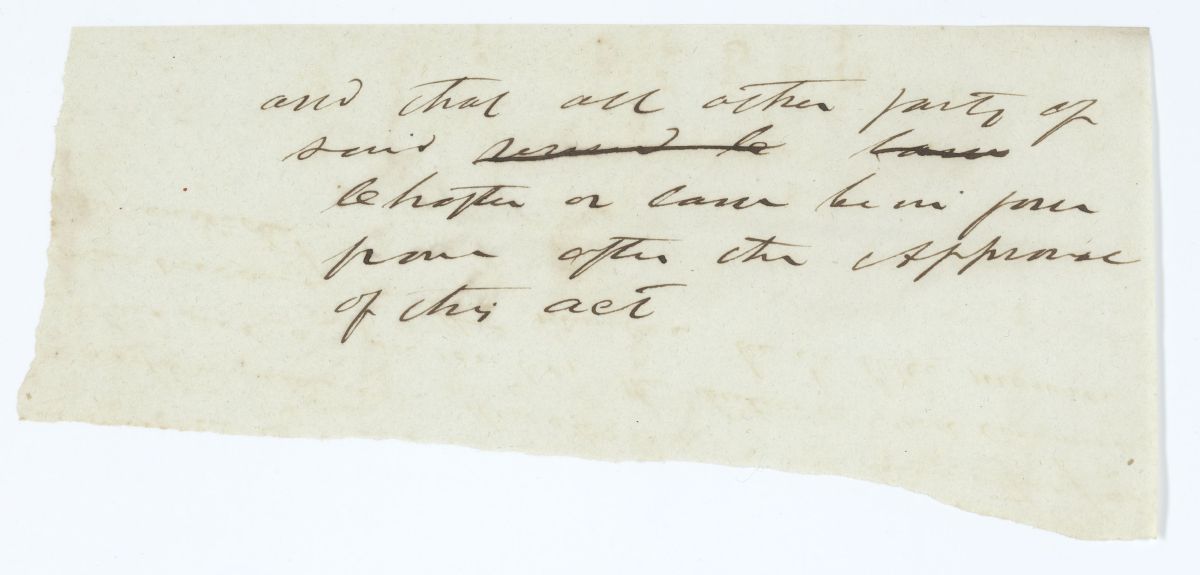 and that all other parts of
said
Chapter or Law be in force
from after the Approval
of this act